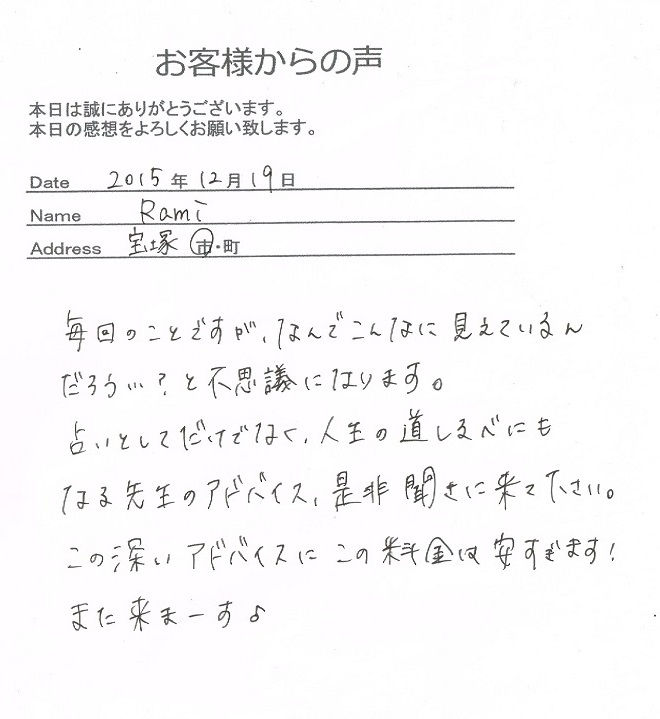 お客様からの声
本日は誠にありがとうございます。
本日の感想をよろしくお願い致します。
Date 2015年12月19日
Name Rami
Address 宝塚 市・町
毎回のことですが、なんでこんなに見えているん
だろう…?と不思議になります。
占いとしてだけでなく、人生の道しるべにも
なる先生のアドバイス、是非聞きに来て下さい。
この深いアドバイスにこの料金は安すぎます!
また来まーす♪